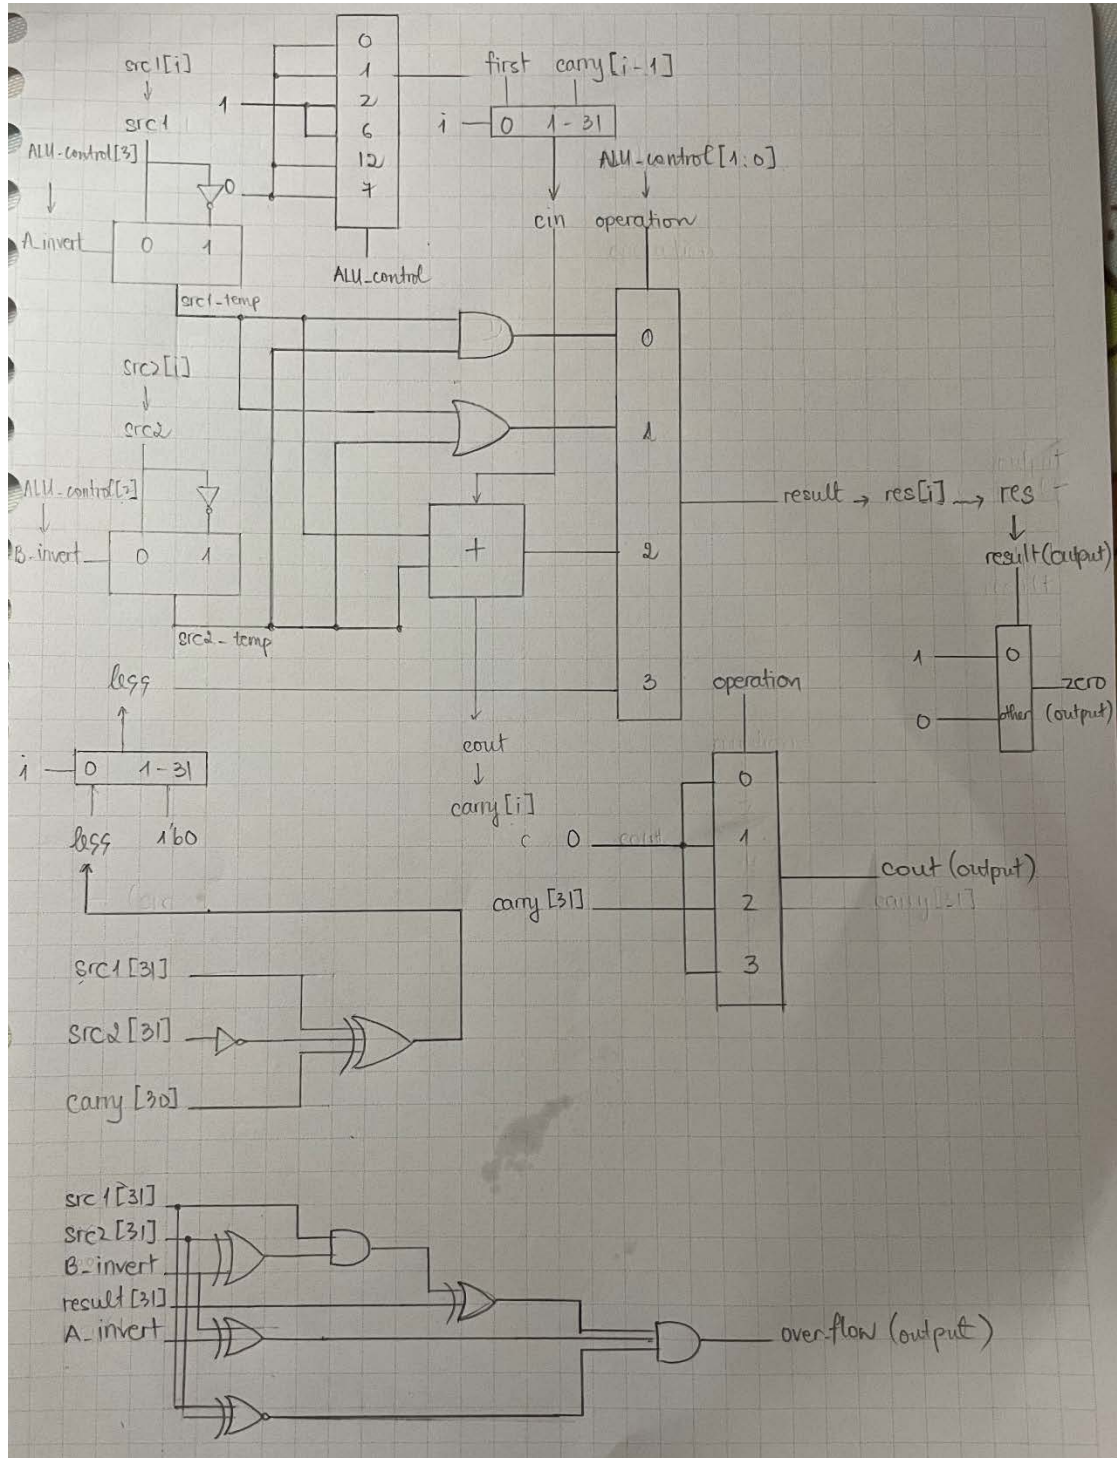 src1[i]
src1
ALU-control[3]
A-invert
0 1
1
0
0
1
2
6
12
7
ALU-control
first carry[i-1]
i
0 1-31
ALU-control[1:0]
cin operation
src1-temp
src2[i]
src2
ALU-control[2]
B-invert
0 1
src2-temp
+
0
1
2
3
result → res[i] → res
result(output)
1
0
0
other
zero
(output)
less
i
0 1-31
less 1'b0
cout
carry[i]
operation
0
carry[31]
0
1
2
3
cout (output)
carry[31]
src1[31]
src2[31]
carry[30]
src1[31]
src2[31]
B-invert
result[31]
A-invert
overflow (output)